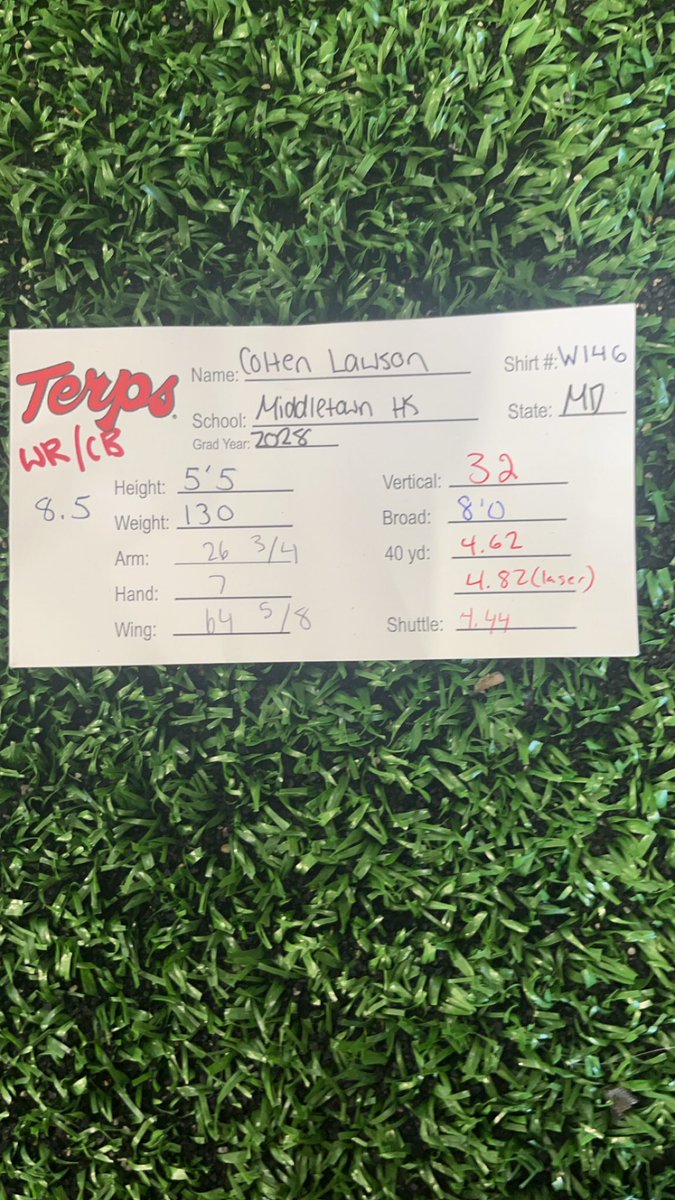 Terps
Name: Colten Lawson Shirt #: W146
School: Middletown HS State: MD
Grad Year: 2028
WR/CB
8.5
Height: 5'5 Vertical: 32
Weight: 130 Broad: 8'0
Arm: 26 3/4 40 yd: 4.62
Hand: 7 4.82 (laser)
Wing: 64 5/8 Shuttle: 4.44